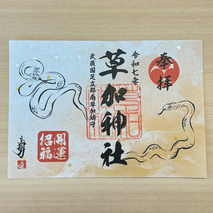 奉拝
令和七年
草加神社
武蔵国足立郡南草加鎮守
開運
招福